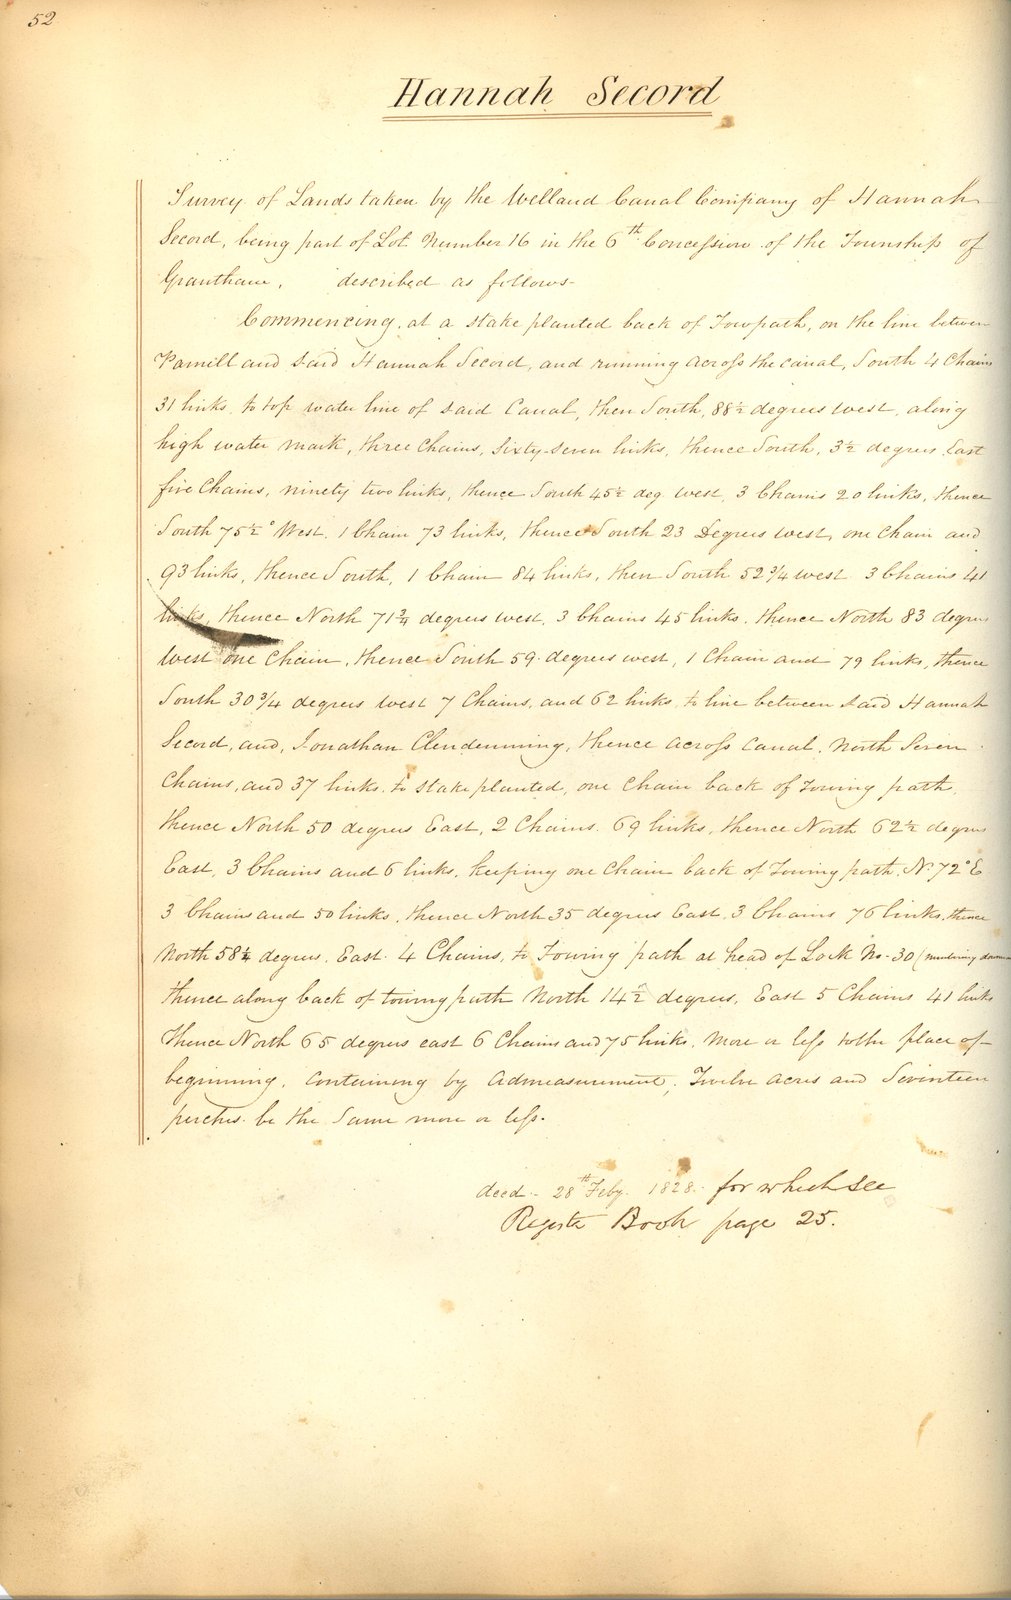 52
Hannah Secord
Survey of Lands taken by the Welland Canal Company of Hannah
Secord, being part of Lot Number 16 in the 6th Concession of the Township of
Grantham, described as follows
Commencing, at a stake planted back of Towpath, on the line between
Parnill and said Hannah Secord, and running across the canal, South 4 Chains
31 links, to top water line of said Canal, then South, 88½ degrees west, along
high water mark, three chains, sixty-seven links, thence South, 3½ degrees East
five Chains, ninety two links, thence South 45½ deg west, 3 Chains 20 links, thence
South 75½° West. 1 Chain 73 links, thence South 23 Degrees west, one chain and
93 links, thence South, 1 Chain 84 links, then South 52¾ west 3 Chains 41
links, thence North 71¾ degrees west, 3 Chains 45 links, thence North 83 degrees
West one Chain, thence South 59 degrees west, 1 Chain and 79 links, thence
South 30¾ degrees west 7 Chains, and 62 links, to line between said Hannah
Secord, and, Jonathan Clendenning, thence across canal, North Seven
Chains, and 37 links, to stake planted, one Chain back of Towing path,
thence North 50 degrees East, 2 Chains 69 links, thence North 62½ degrees
East, 3 Chains and 6 links, keeping one Chain back of Towing path, N. 72° E
3 Chains and 50 links, thence North 35 degrees East. 3 Chains 76 links, thence
North 58¼ degrees, East. 4 Chains, to Towing path at head of Lock No. 30 (numbering
thence along back of towing path North 14½ degrees, East 5 Chains 41 links
thence North 65 degrees east 6 Chains and 75 links, more or less to the place of
beginning, containing by admeasurement, Twelve acres and Seventeen
perches. be the Same more or less.
deed - 28th Feby. 1828. for which see
Register Book page 25.